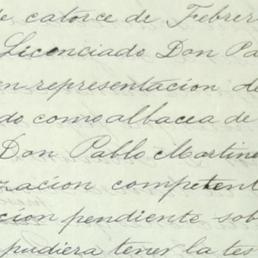 de catorce de Febrer
Licenciado Don Pa
en representacion de
do como albacea de
Don Pablo Martine
zacion competent
cion pendiente sob
pudiera tener la tes